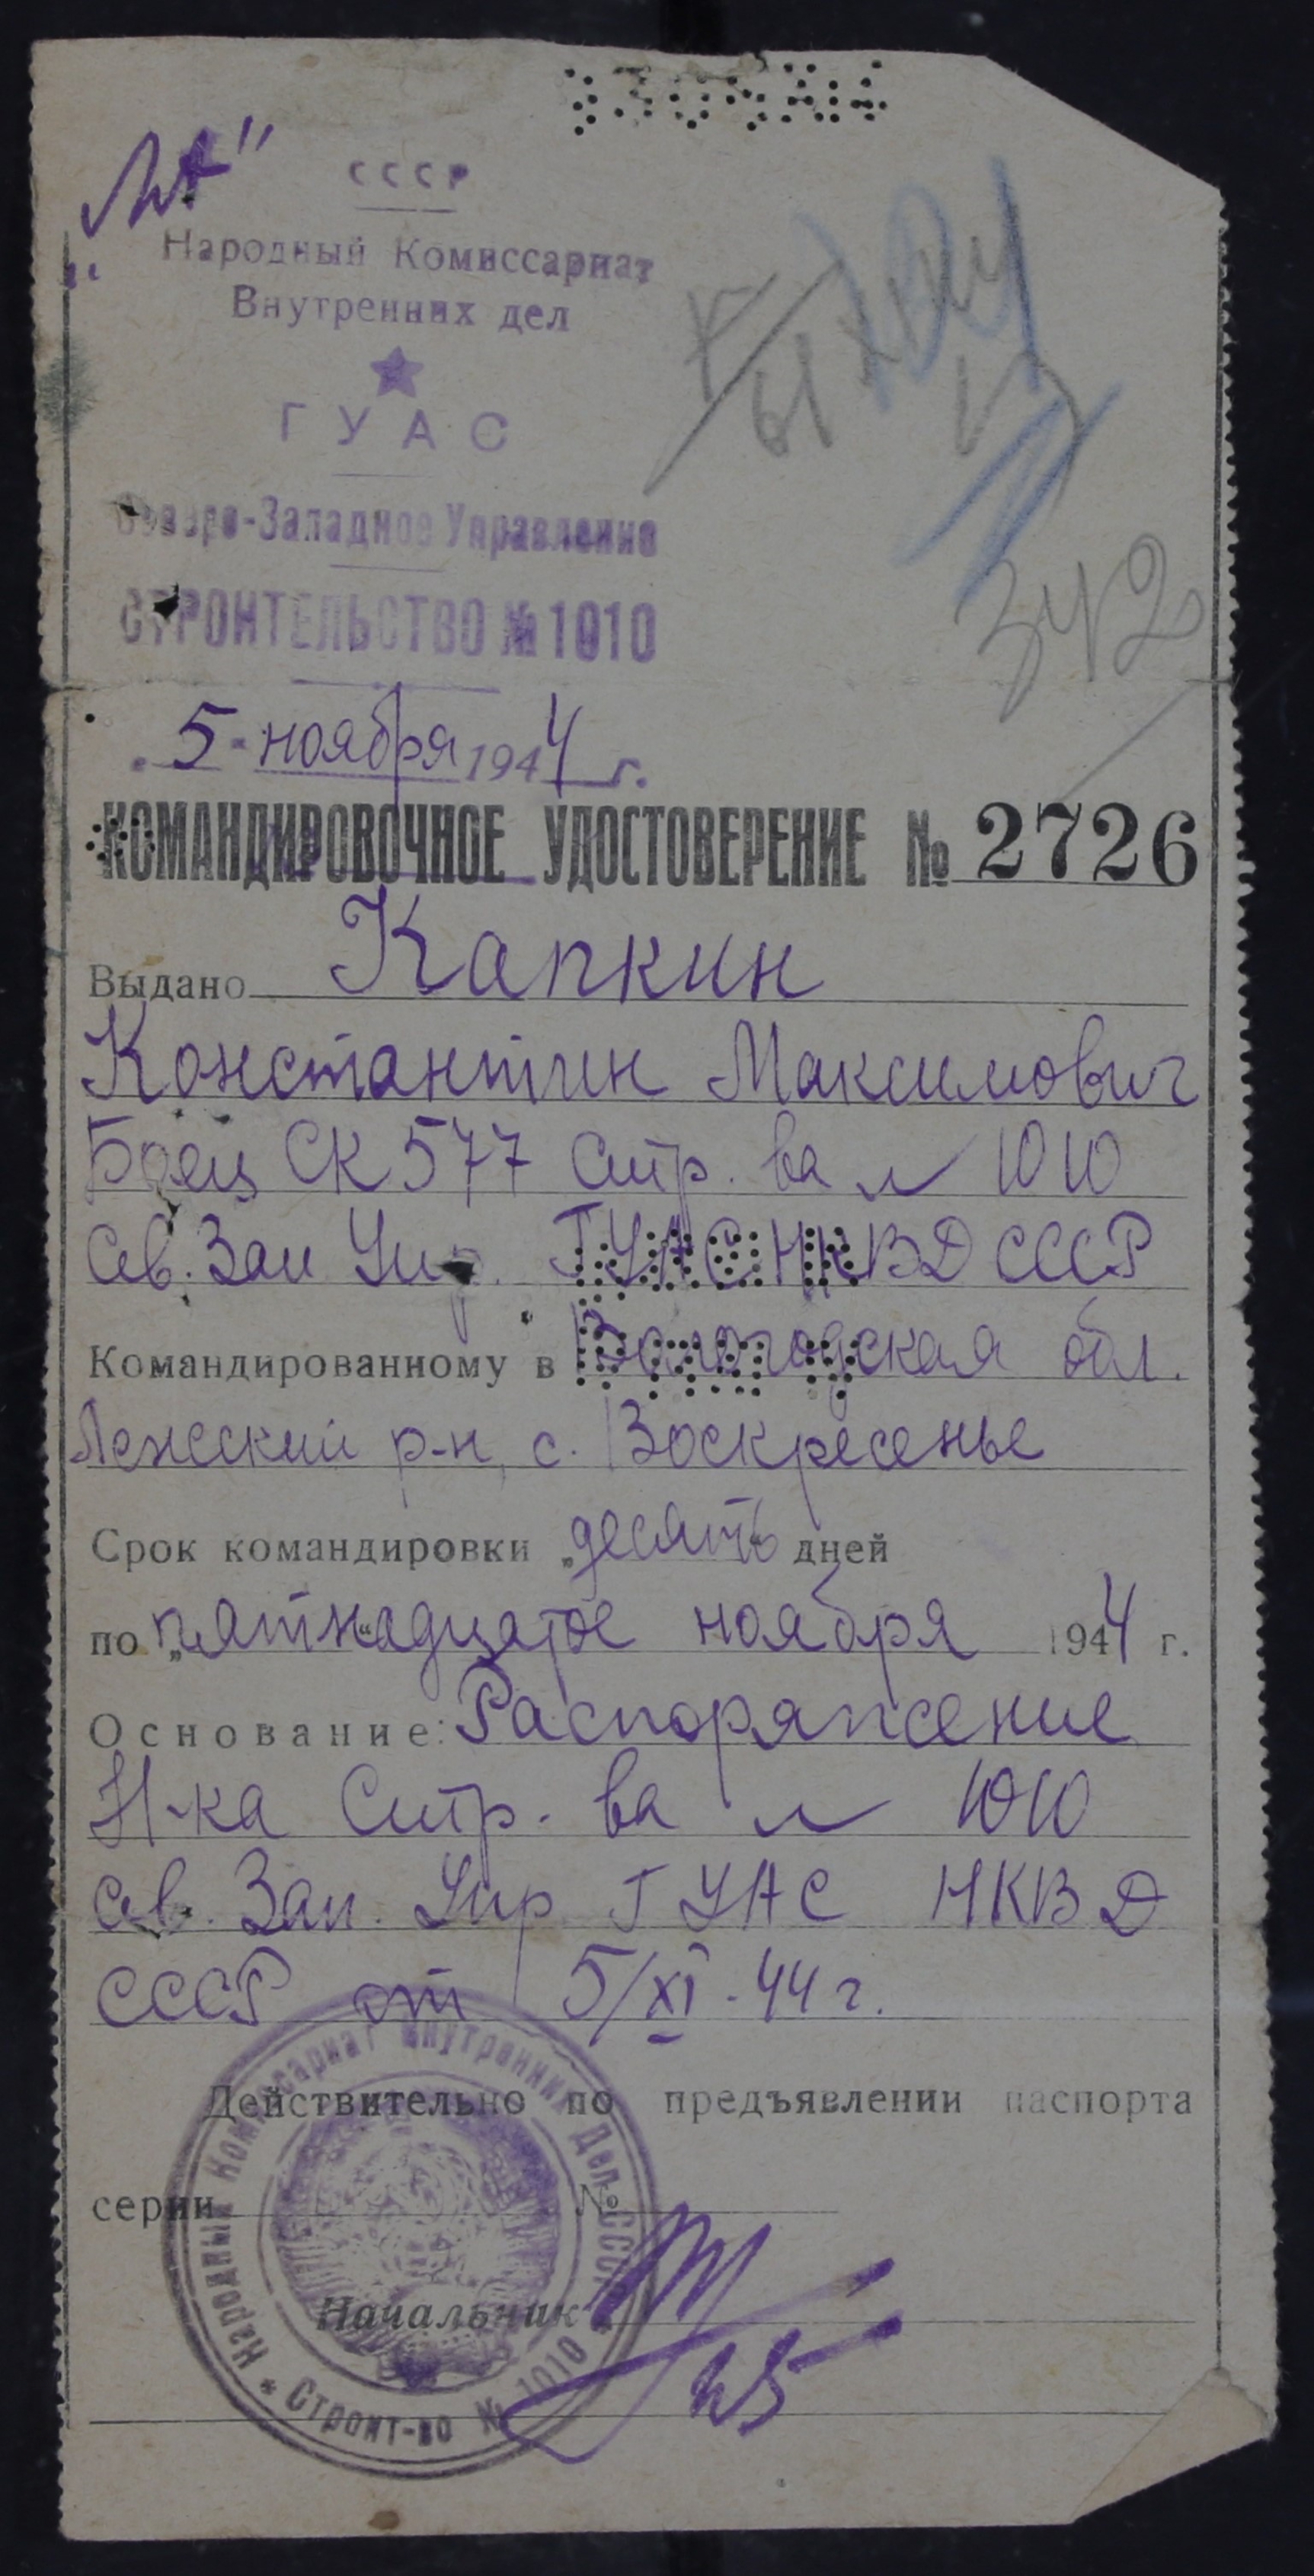 СССР
Народный Комиссариат
Внутренних дел
ГУАС
Северо-Западное Управление
СТРОИТЕЛЬСТВО № 1010
342
"5" ноября 1944 г.
КОМАНДИРОВОЧНОЕ УДОСТОВЕРЕНИЕ № 2726
Выдано Капкин
Константин Максимович
Боец СК 577 Стр. ва № 1010
Св. Зап Упр. ГУАС НКВД СССР
Командированному в Вологодская обл.
Лежский р-н, с. Воскресенье
Срок командировки „десять" дней
по „пятнадцатое" ноября 1944 г.
Основание: Распоряжение
Н-ка Стр. ва № 1010
Св. Зап. Упр ГУАС НКВД
СССР от 5/XI-44 г.
Действительно по предъявлении паспорта
серии №
Начальник
Народный Комиссариат Внутренних Дел СССР * Строит-во № 1010